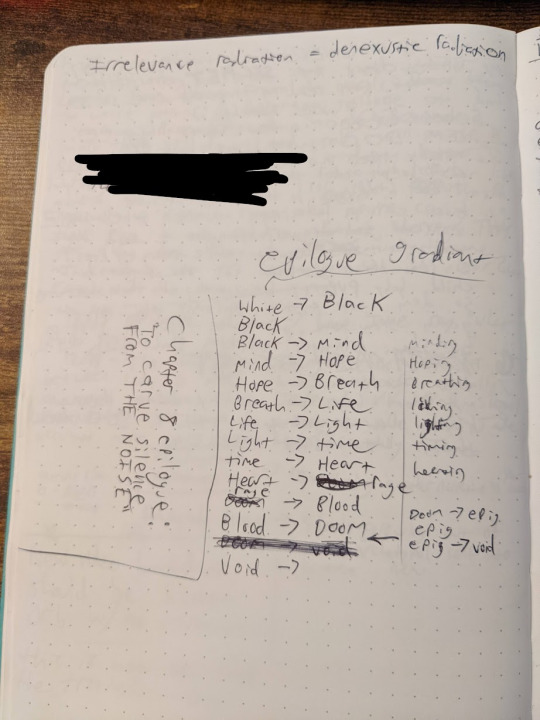 Irrelevance radiation = denexustic radiation
epilogue gradient
White → Black
Black
Black → Mind
Mind → Hope
Hope → Breath
Breath → Life
Life → Light
Light → time
time → Heart
Heart → rage
rage → Blood
Blood → DOOM
Void →
minding
Hoping
Breathin
lighting
timing
Doom → epig
epig
epig → void
Chapter 8 epilogue:
To carve silence
From THE NOISE"